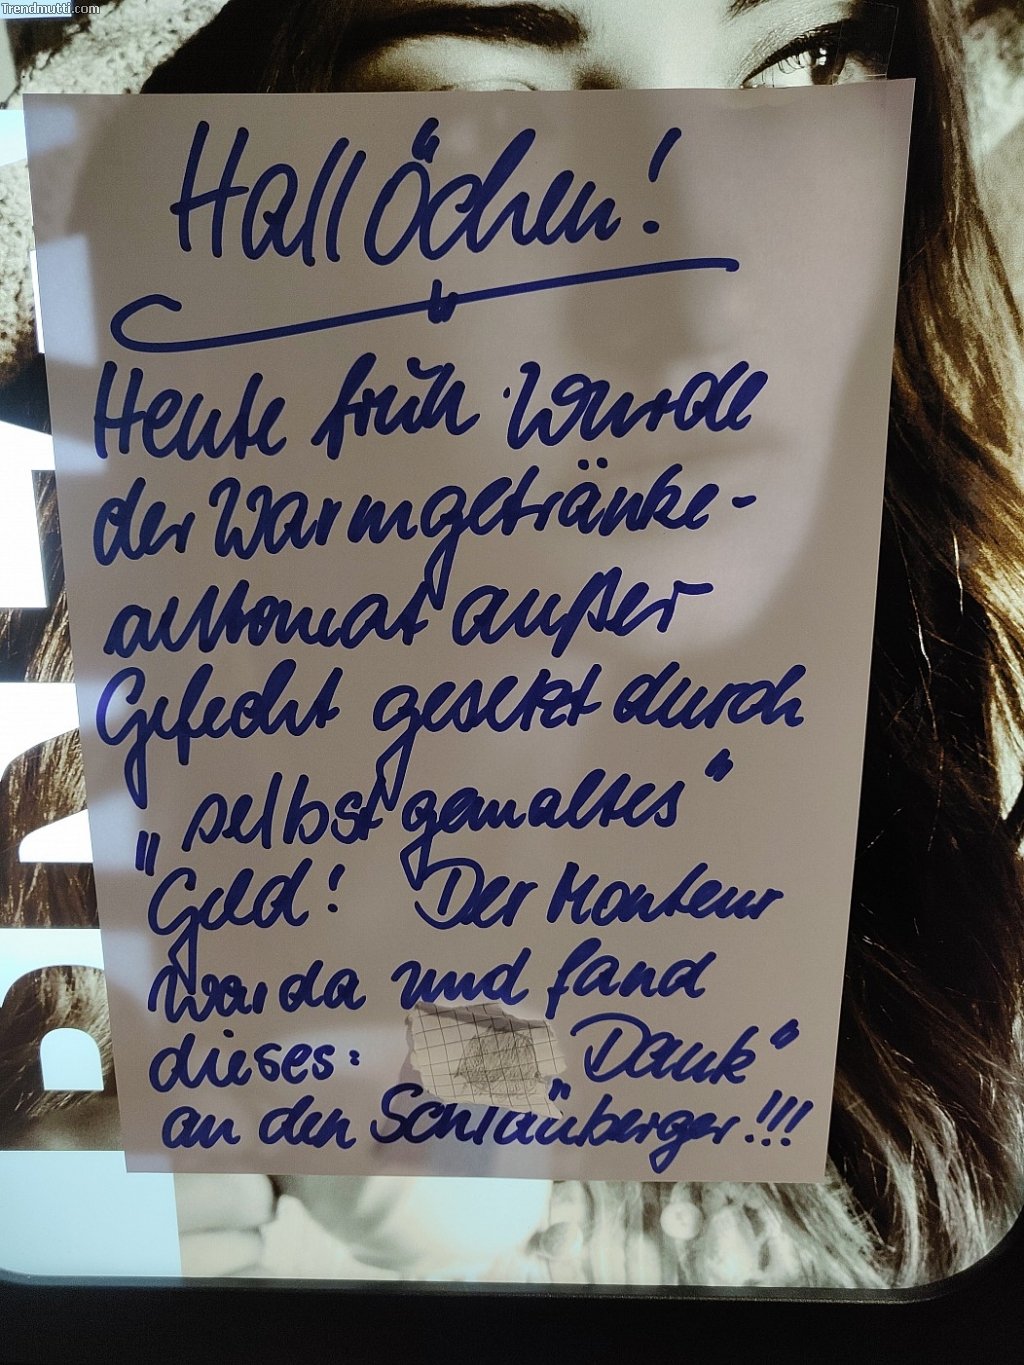 Trendmutti.com
HallÖchen!
Heute früh wurde
der Warmgetränke-
automat außer
Gefecht gesetzt durch
„selbstgemaltes“
Geld! Der Monteur
war da und fand
dieses: „Dank“
an den Schlauberger!!!